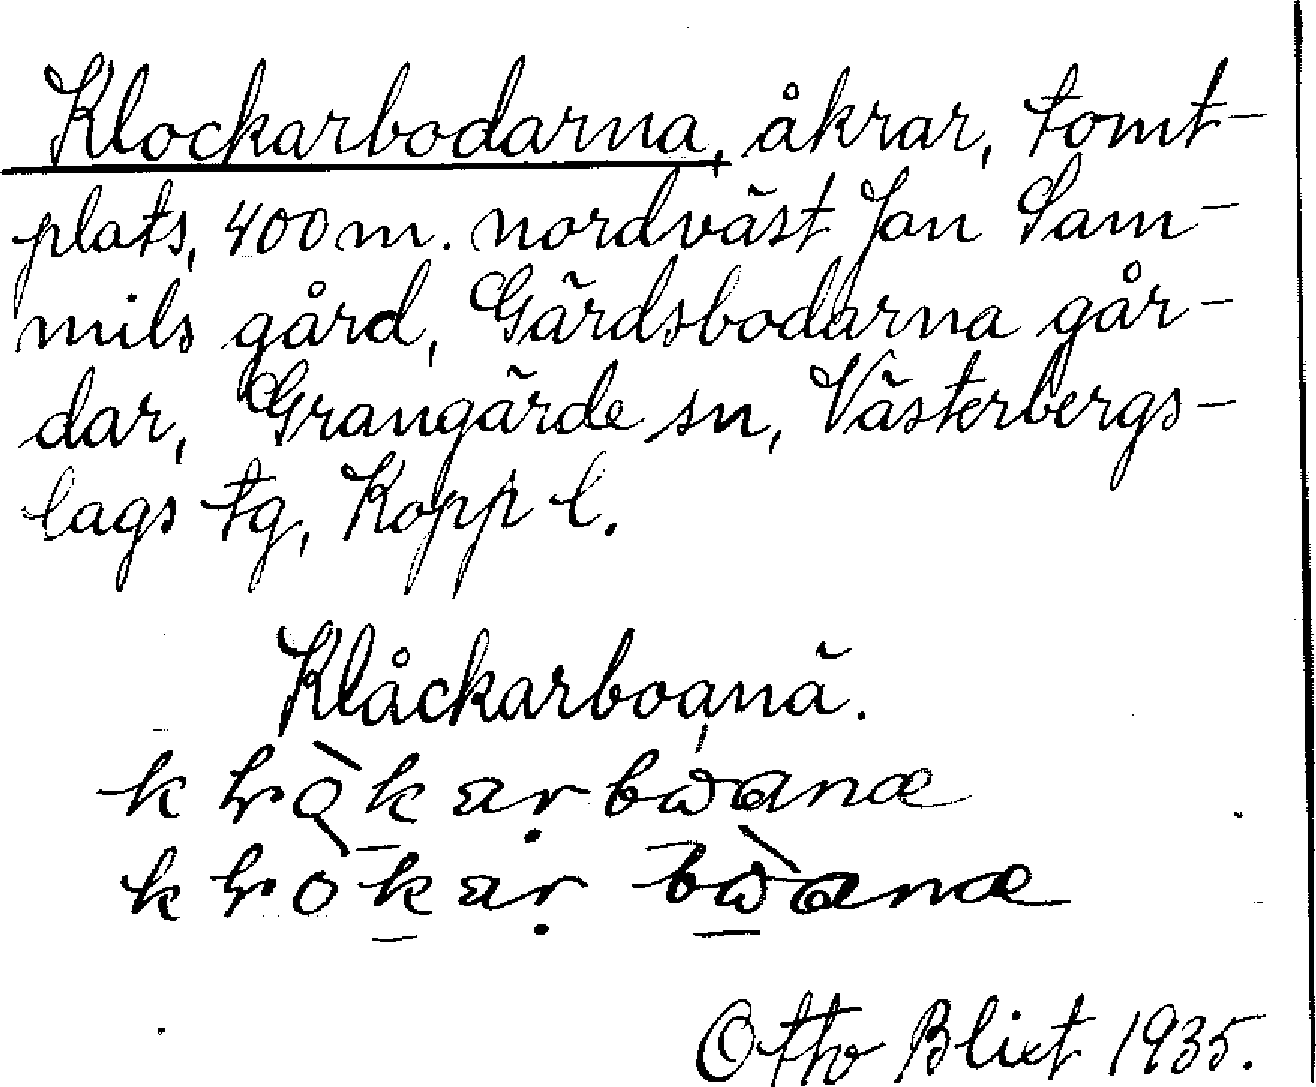 Klockarbodarna, åkrar, tomt-
plats, 400 m. nordväst Jan Sam-
mils gård, Gärdsbodarna går-
dar, Grangärde sn, Västerbergs-
lags tg, Kopp l.
Klåckarboạnä.
Otto Blixt 1935.